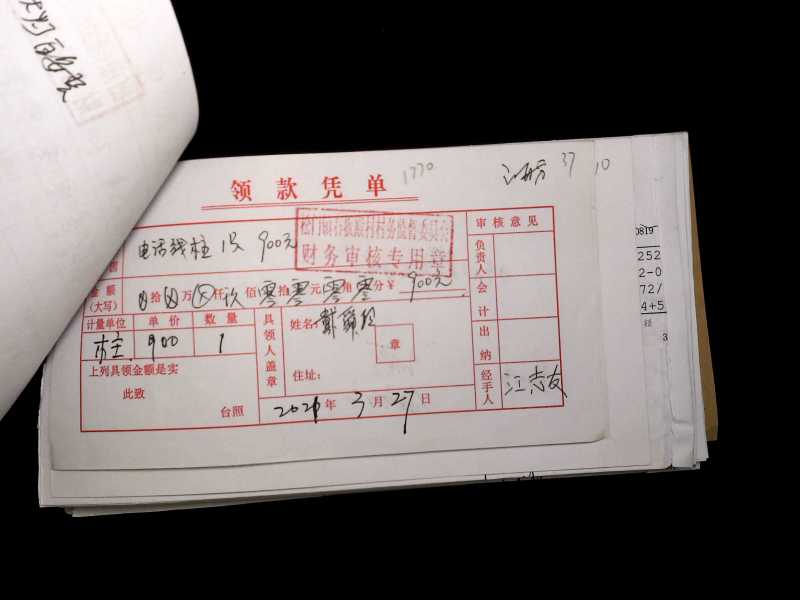 1770
37 10
领款凭单
电话线柱 1只 900元
村务监督委员会
财务审核专用章
审核意见
负责人
会计
出纳
经手人
江志友
金额
(大写)
拾 万 仟 玖 佰 零 拾 零 元 零 角 零 分 ¥ 900元
计量单位 单价 数量
900 1
具领人盖章
姓名:
章
住址:
上列具领金额是实
此致
台照
年 3 月 27 日
0819
252
2-0
72/
4+5
径
3